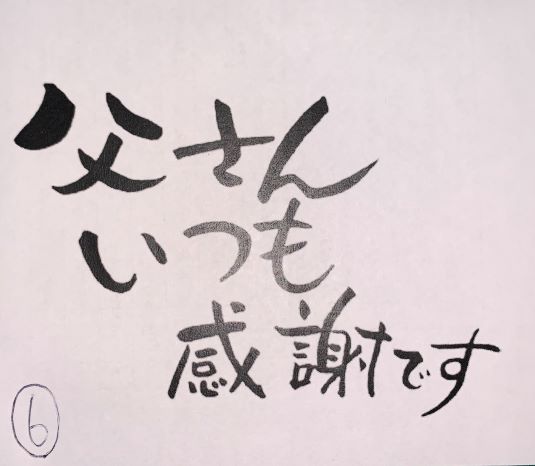 父さん
いつも
感謝です
6